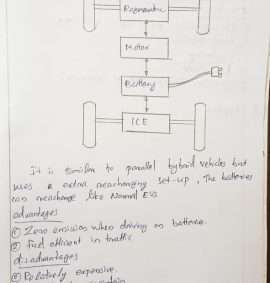 Regenerative
Motor
Battery
ICE
It is similar to parallel hybrid vehicles but
uses a extra recharging set-up, The batteries
can recharge like Normal EVs
advantages
① Zero emission when driving on batteries.
② Fuel efficient in traffic
disadvantages
① Relatively expensive.